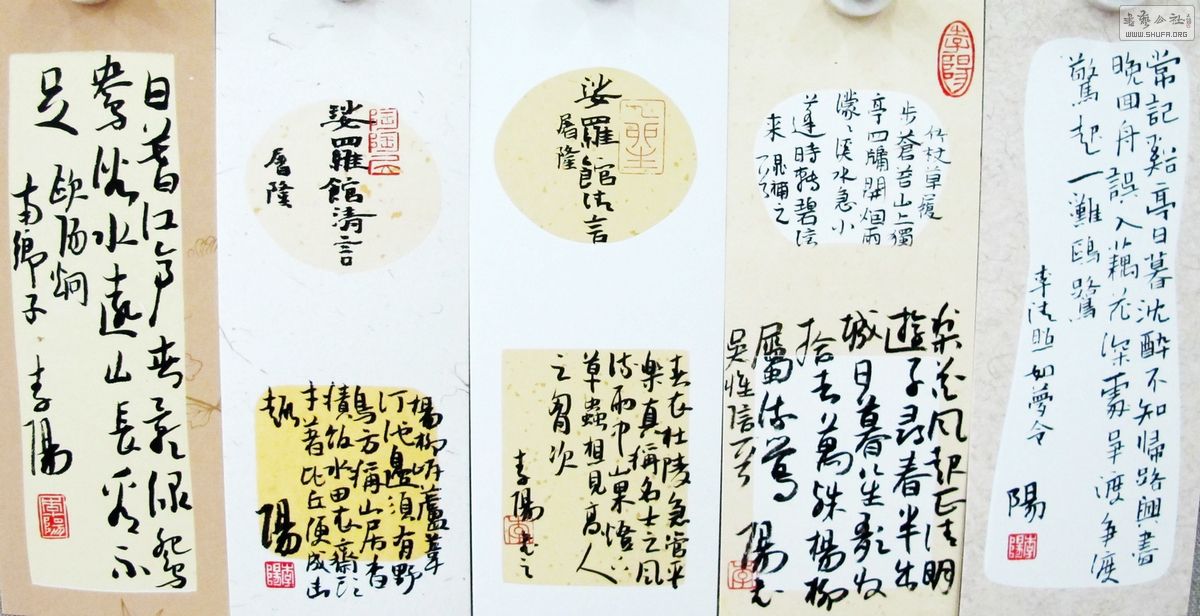 書藝公社
WWW.SHUFA.ORG
常記谿亭日暮沈醉不知歸路興盡
晚回舟誤入藕花深處爭渡爭渡
驚起一灘鷗鷺
李清照如夢令
陽
李陽
李陽
竹杖草履
步蒼苔山上獨
亭四牖開烟雨
濛々溪水急小
篷時轉碧
來
梨花風起正清明
遊子尋春半出
城日暮笙歌收
拾去萬株楊柳
屬流鶯 陽書
吳惟信
娑羅館清言
屠隆
春衣杜陵急管平
樂真稱名士之風
流雨中山果燈下
草蟲想見高人
之胸次
李陽書之
娑羅館清言
屠隆
楊柳岸蘆葦
汀池邊須有野
鳥方稱山居香
積飯水田衣齋頭
才著比丘便成幽
趣
陽
李陽
日暮江亭春影渌鴛
鴦浴水遠山長看不
足
歐陽炯
南鄉子
李陽
李陽